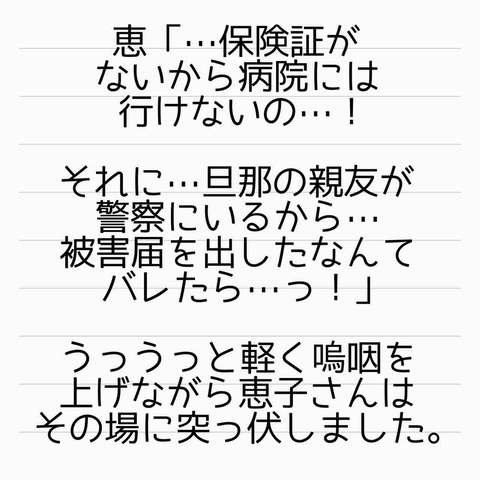 恵「…保険証が
ないから病院には
行けないの…！
それに…旦那の親友が
警察にいるから…
被害届を出したなんて
バレたら…っ！」
うっうっと軽く嗚咽を
上げながら恵子さんは
その場に突っ伏しました。